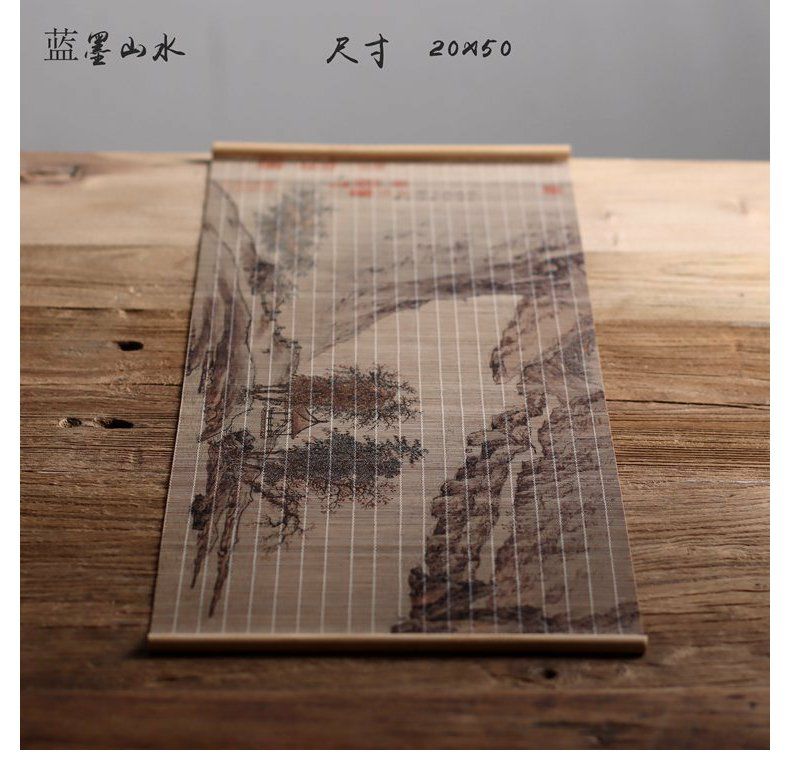 蓝墨山水 尺寸 20x50